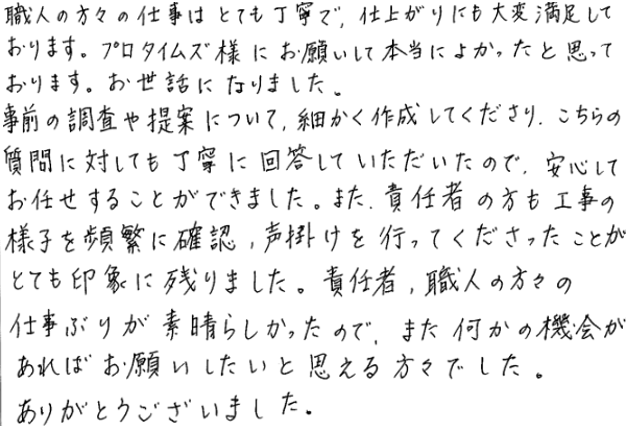 職人の方々の仕事はとても丁寧で、仕上がりにも大変満足して
おります。プロタイムズ様にお願いして本当によかったと思って
おります。お世話になりました。
事前の調査や提案について、細かく作成してくださり、こちらの
質問に対しても丁寧に回答していただいたので、安心して
お任せすることができました。また、責任者の方も工事の
様子を頻繁に確認、声掛けを行ってくださったことが
とても印象に残りました。責任者、職人の方々の
仕事ぶりが素晴らしかったので、また何かの機会が
あればお願いしたいと思える方々でした。
ありがとうございました。